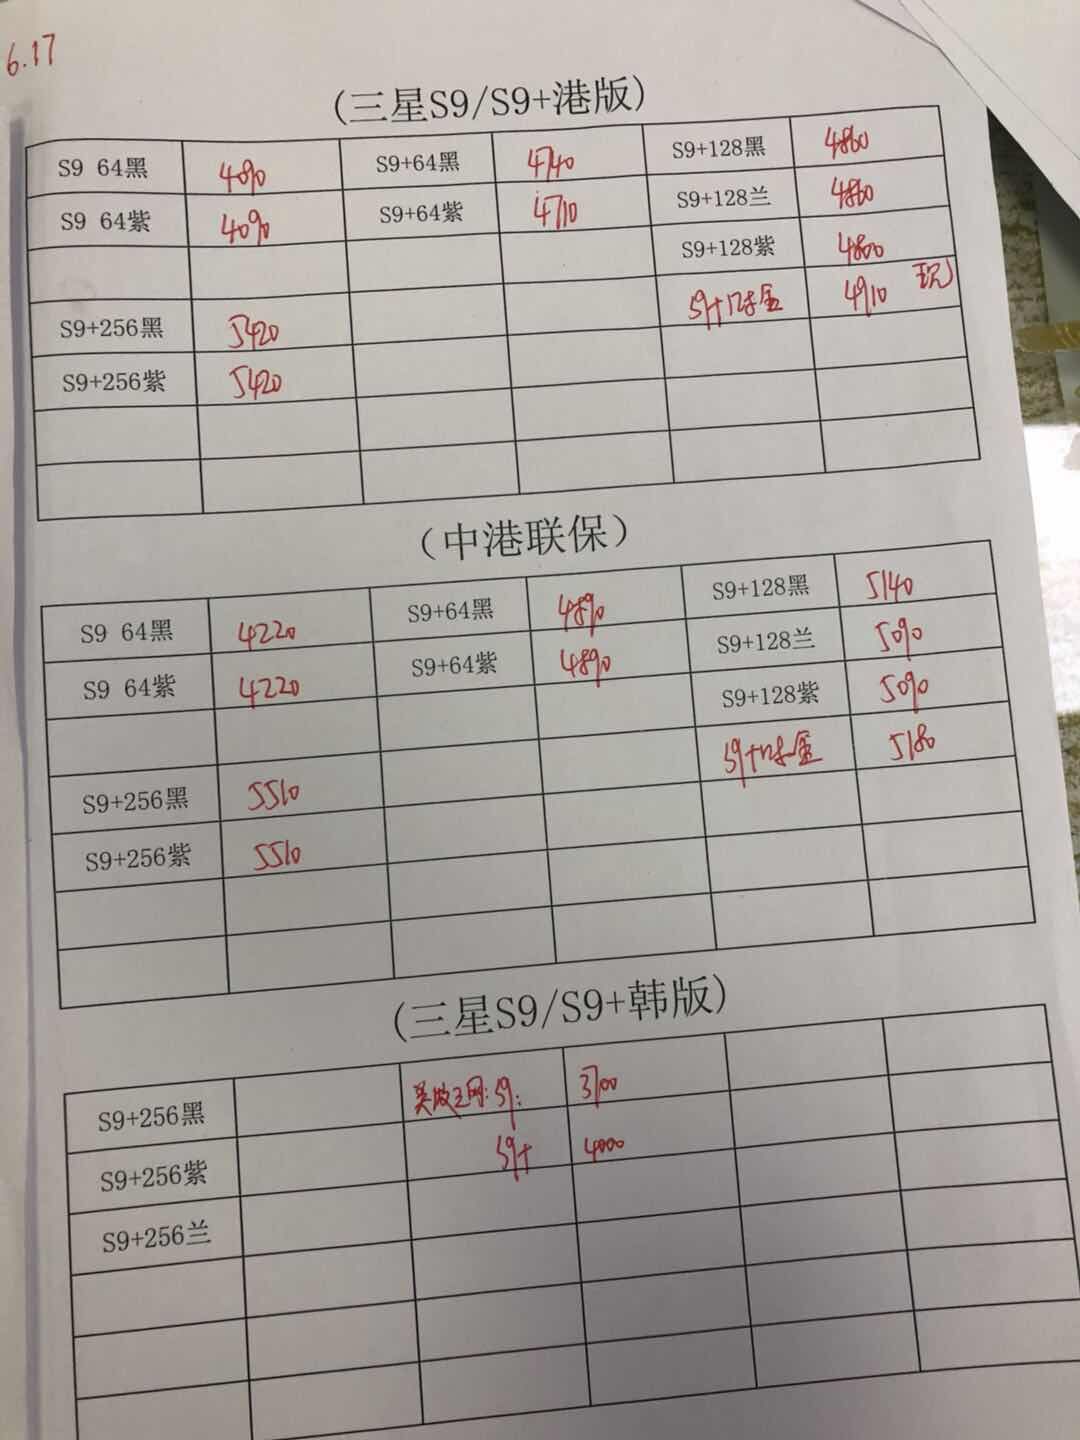 6.17
(三星S9/S9+港版)
S9 64黑 4090 S9+64黑 4740 S9+128黑 4860
S9 64紫 4090 S9+64紫 4710 S9+128兰 4860
S9+128紫 4800
S9+256黑 5420 S9+128金 4910 现
S9+256紫 5420
（中港联保）
S9 64黑 4220 S9+64黑 4890 S9+128黑 5140
S9 64紫 4220 S9+64紫 4890 S9+128兰 5090
S9+128紫 5090
S9+256黑 5510 S9+128金 5180
S9+256紫 5510
(三星S9/S9+韩版)
S9+256黑 美版三网:S9: 3700
S9+256紫 S9+ 4000
S9+256兰